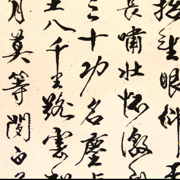 抬望眼仰天
長嘯壯懷激
三十功名塵与
土八千里路雲和
月莫等閒白